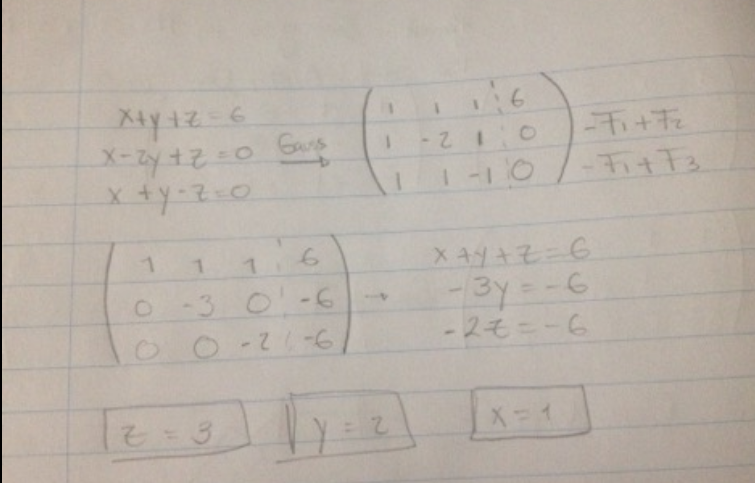 x+y+z=6
x-2y+z=0 Gauss →
x+y-z=0
1 1 1 6
1 -2 1 0 -F1+F2
1 1 -1 0 -F1+F3
1 1 1 6
0 -3 0 -6 →
0 0 -2 -6
x+y+z=6
-3y=-6
-2z=-6
z=3 y=2 x=1